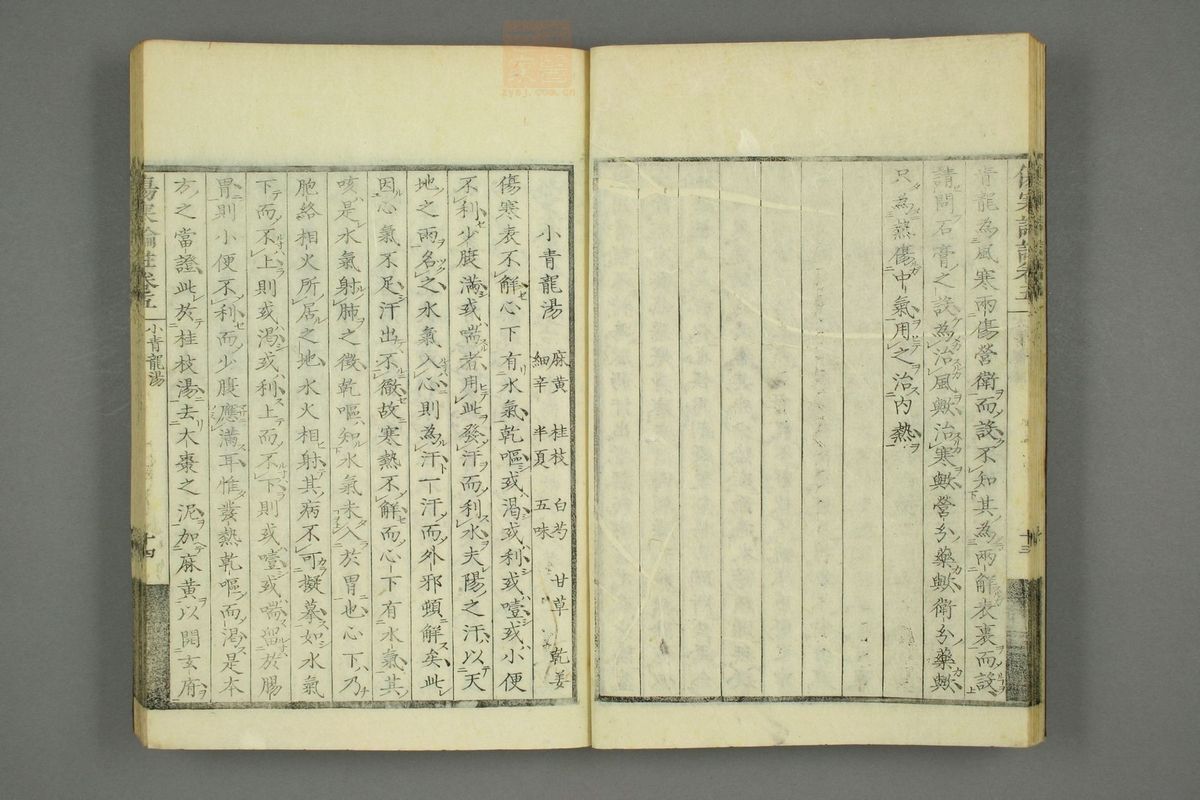 青龍為風寒兩傷營衛而設不知其為兩解表裏而設
請問石膏之設為治風歟治寒歟營分藥歟衛分藥歟
只為熱傷中氣用之治內熱
十三
小青龍湯
麻黃 桂枝 白芍 甘草 乾姜
細辛 半夏 五味
傷寒表不解心下有水氣乾嘔或渴或利或噎或小便
不利少腹滿或喘者用此發汗而利水夫陽之汗以天
地之雨名之水氣入心則為汗一汗而外邪頓解矣此
因心氣不足汗出不徹故寒熱不解而心下有水氣其
咳是水氣射肺之徵乾嘔知水氣未入於胃也心下乃
胞絡相火所居之地水火相射其病不可擬摹如水氣
下而不上則或渴或利上而不下則或噎或喘留於腸
胃則小便不利而少腹應滿耳惟發熱乾嘔而渴是本
方之當證此於桂枝湯去大棗之泥加麻黃以開玄府
傷寒論註卷五
小青龍湯
十四
zysj.com.cn